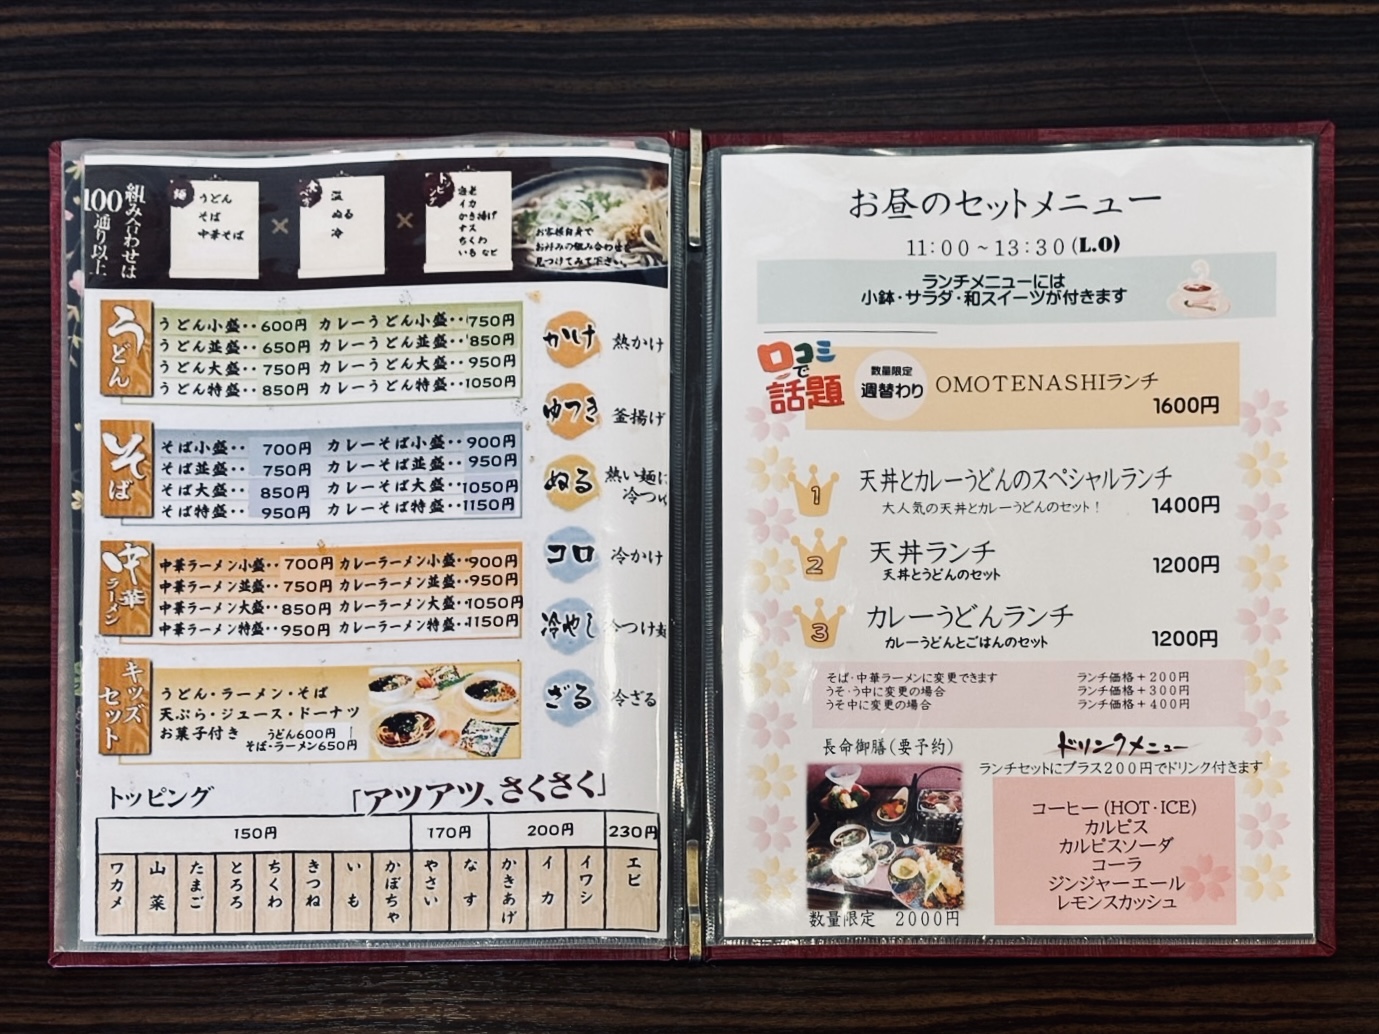 組み合わせは
100通り以上
麺
うどん
そば
中華そば
×
温
ぬる
冷
×
トッピング
海老
イカ
かき揚げ
ナス
ちくわ
いも など
お客様自身で
お好みの組み合わせを
見つけてみて下さい。
うどん
うどん小盛‥600円 カレーうどん小盛‥750円
うどん並盛‥650円 カレーうどん並盛‥850円
うどん大盛‥750円 カレーうどん大盛‥950円
うどん特盛‥850円 カレーうどん特盛‥1050円
そば
そば小盛‥700円 カレーそば小盛‥900円
そば並盛‥750円 カレーそば並盛‥950円
そば大盛‥850円 カレーそば大盛‥1050円
そば特盛‥950円 カレーそば特盛‥1150円
中華ラーメン
中華ラーメン小盛‥700円 カレーラーメン小盛‥900円
中華ラーメン並盛‥750円 カレーラーメン並盛‥950円
中華ラーメン大盛‥850円 カレーラーメン大盛‥1050円
中華ラーメン特盛‥950円 カレーラーメン特盛‥1150円
キッズセット
うどん・ラーメン・そば
天ぷら・ジュース・ドーナツ
お菓子付き うどん600円
そば・ラーメン650円
かけ 熱かけ
ゆつき 釜揚げ
ぬる 熱い麺に
冷つ
コロ 冷かけ
冷やし 冷つけ
ざる 冷ざる
トッピング 「アツアツ、さくさく」
150円 170円 200円 230円
ワカメ
山菜
たまご
とろろ
ちくわ
きつね
いも
かぼちゃ
やさい
なす
かきあげ
イカ
イワシ
エビ
お昼のセットメニュー
11:00~13:30(L.O)
ランチメニューには
小鉢・サラダ・和スイーツが付きます
口コミで話題
数量限定
週替わり
OMOTENASHIランチ
1600円
1
天丼とカレーうどんのスペシャルランチ
大人気の天丼とカレーうどんのセット! 1400円
2
天丼ランチ
天丼とうどんのセット
1200円
3
カレーうどんランチ
カレーうどんとごはんのセット 1200円
そば・中華ラーメンに変更できます ランチ価格+200円
うそ・う中に変更の場合 ランチ価格+300円
うそ中に変更の場合 ランチ価格+400円
長命御膳(要予約)
数量限定 2000円
ドリンクメニュー
ランチセットにプラス200円でドリンク付きます
コーヒー(HOT・ICE)
カルピス
カルピスソーダ
コーラ
ジンジャーエール
レモンスカッシュ